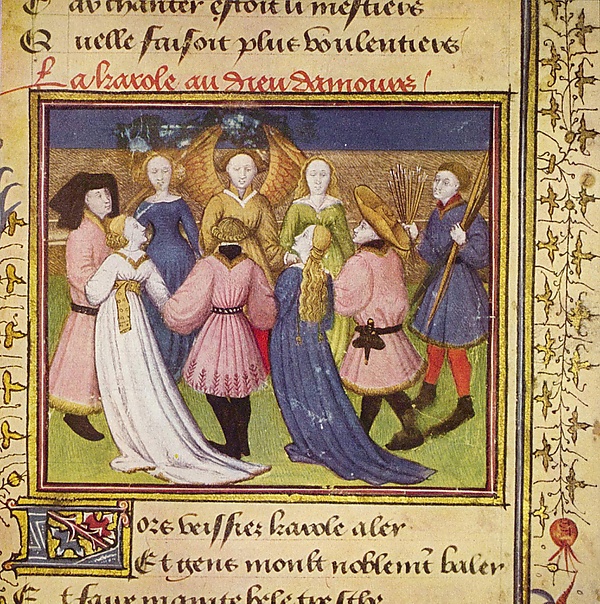 au chanter estoit li mestiers
Q uelle faisoit plus voulentiers
La karole au dieu damours
Lors veissiez karole aler
Et gens moult noblemt baler
E t faire mainte bele